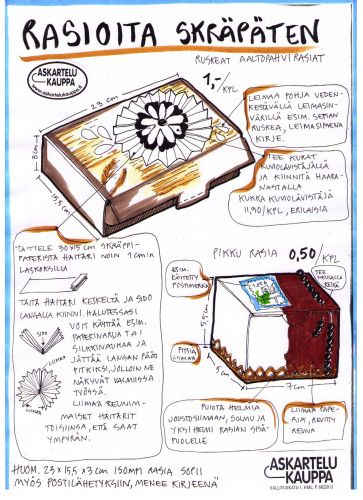 RASIOITA SKRÄPÄTEN
RUSKEAT AALTOPAHVIRASIAT
ASKARTELU
KAUPPA
www.askartelukauppa.fi
1,-
/KPL
23
8cm
15,5 cm
LEIMAA POHJA VEDEN-
KESTÄVÄLLÄ LEIMASIN-
VÄRILLÄ ESIM. SEPIAN
RUSKEA, LEIMASIMENA
KIRJE.
TEE KUKAT
KUVIOLÄVISTÄJÄLLÄ
JA KIINNITÄ HAARA-
NASTALLA
KUKKA KUVIOLÄVISTÄJÄ
11,90/KPL, ERILAISIA
TAITTELE 30x15 cm SKRÄPPI-
PAPERISTA HAITARI NOIN 1cmin
LASKOKSILLA
TAITA HAITARI KESKELTÄ JA SIDO
LANGALLA KIINNI, HALUTESSASI
VOIT KÄYTTÄÄ ESIM.
PAPERINARUA TAI
SILKKINAUHAA JA
JÄTTÄÄ LANGAN PÄÄT
PITKIKSI, JOLLOIN NE
NÄKYVÄT VALMIISSA
TYÖSSÄ.
LIIMAA REUNIM-
MAISET HAITARIT
TOISIINSA, ETTÄ SAAT
YMPYRÄN.
SIDO
LIIMAA
LIIMAA
PIKKU RASIA 0,50/KPL
ESIM.
KÄYTETTY
POSTIMERKKI
TEE
NEULALLA
REIKÄ
5,5cm
PITSIÄ
LIIMAA
5 cm
7cm
PUJOTA HELMIÄ
JOUSTOSIIMAAN, SOLMU JA
YKSI HELMI RASIAN SISÄ-
PUOLELLE
LIIMAA PAPE-
RIA, REVITTY
REUNA
HUOM. 23 x 15,5 x 3 cm ISOMPI RASIA SOPII
MYÖS POSTILÄHETYKSIIN, MENEE KIRJEENÄ
ASKARTELU
KAUPPA